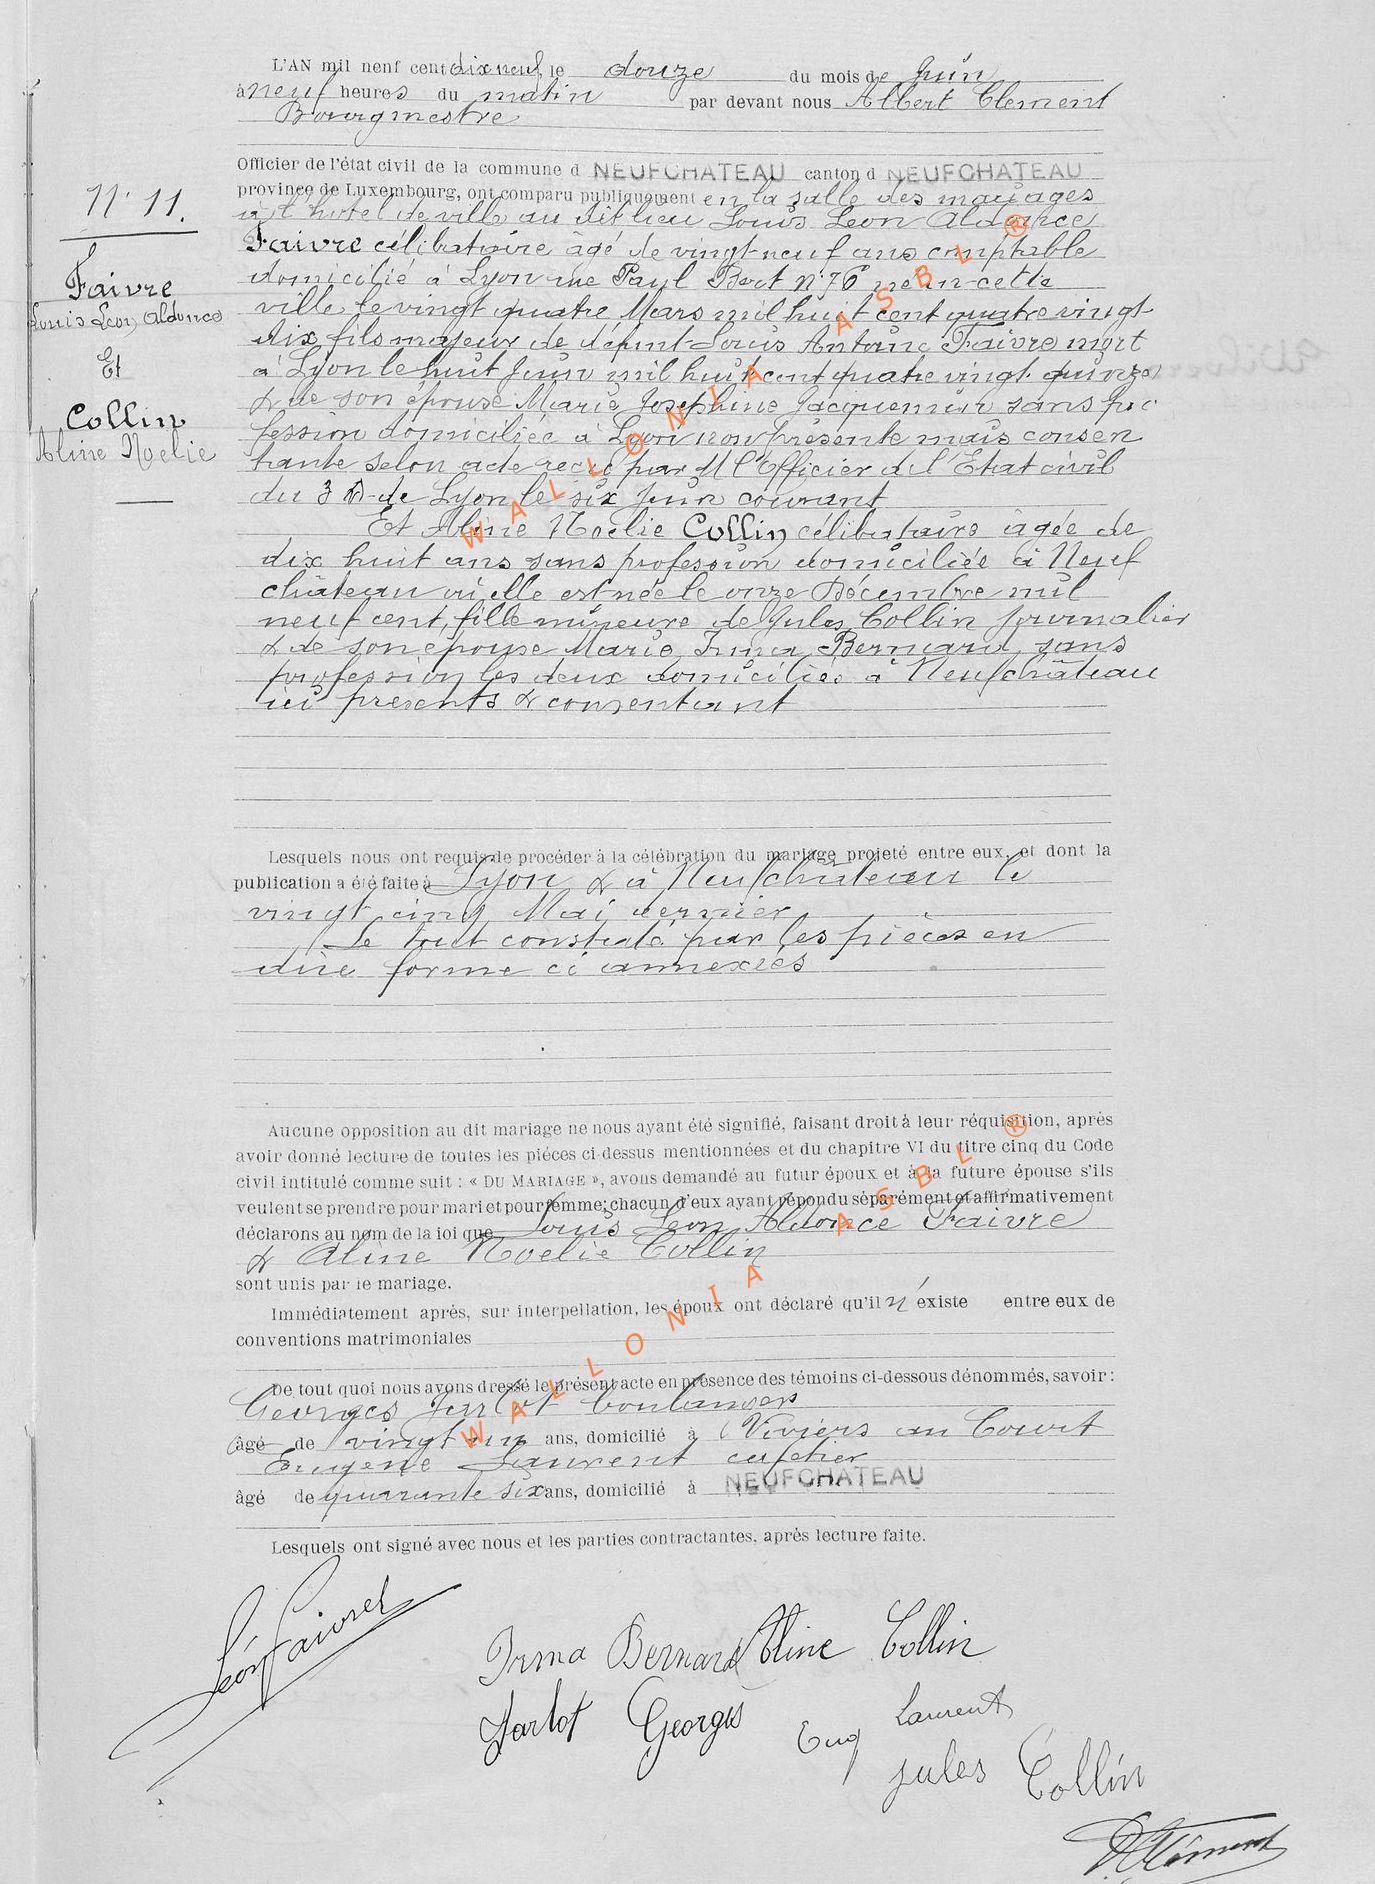 L'AN mil neuf cent dix neuf, le douze du mois de Juin
à neuf heures du matin par devant nous Albert Clement
Bourgmestre
Officier de l'état civil de la commune d NEUFCHATEAU canton d NEUFCHATEAU
province de Luxembourg, ont comparu publiquement en la salle des mariages
à l'hotel de ville au dit lieu Louis Leon Aldonce
Faivre célibataire âgé de vingt-neuf ans comptable
domicilié à Lyon rue Paul Bert N° 76 né en cette
ville le vingt quatre Mars mil huit cent quatre vingt
dix fils majeur de défunt Louis Antoine Faivre mort
à Lyon le huit Juin mil huit cent quatre vingt quinze
& de son épouse Marie Josephine Jacquemin sans pro
fession domiciliée à Lyon non présente mais consen
tante selon acte reçu par M l'Officier de l'Etat civil
du 3 de Lyon le six Juin courant
Et Aline Noélie Collin célibataire âgée de
dix huit ans sans profession domiciliée à Neuf
château où elle est née le onze Décembre mil
neuf cent, fille mineure de Jules Collin journalier
& de son épouse Marie Irma Bernard sans
profession les deux domiciliés à Neufchâteau
ici présents & consentant
N° 11.
Faivre
Louis Leon Aldonce
Et
Collin
Aline Noelie
Lesquels nous ont requis de procéder à la célébration du mariage projeté entre eux, et dont la
publication a été faite à Lyon & à Neufchâteau le
vingt cinq Mai dernier
Le tout constaté par les pièces en
due forme ci annexées
Aucune opposition au dit mariage ne nous ayant été signifié, faisant droit à leur réquisition, après
avoir donné lecture de toutes les piéces ci-dessus mentionnées et du chapitre VI du titre cinq du Code
civil intitulé comme suit : « DU MARIAGE », avons demandé au futur époux et à la future épouse s'ils
veulent se prendre pour mari et pour femme; chacun d'eux ayant répondu séparément et affirmativement
déclarons au nom de la loi que Louis Leon Aldonce Faivre
& Aline Noelie Collin
sont unis par le mariage.
Immédiatement après, sur interpellation, les époux ont déclaré qu'il n'existe entre eux de
conventions matrimoniales
De tout quoi nous avons dressé le présent acte en présence des témoins ci-dessous dénommés, savoir :
Georges Jarlot boulanger
âgé de vingt un ans, domicilié à Viviers au Court
Eugène Laurent cafetier
âgé de quarante six ans, domicilié à NEUFCHATEAU
Lesquels ont signé avec nous et les parties contractantes, après lecture faite.
Léon Faivre
Irma Bernard Aline Collin
Jarlot Georges Eug Laurent
Jules Collin
A Clément
WALLONIA ASBL ®
WALLONIA ASBL ®